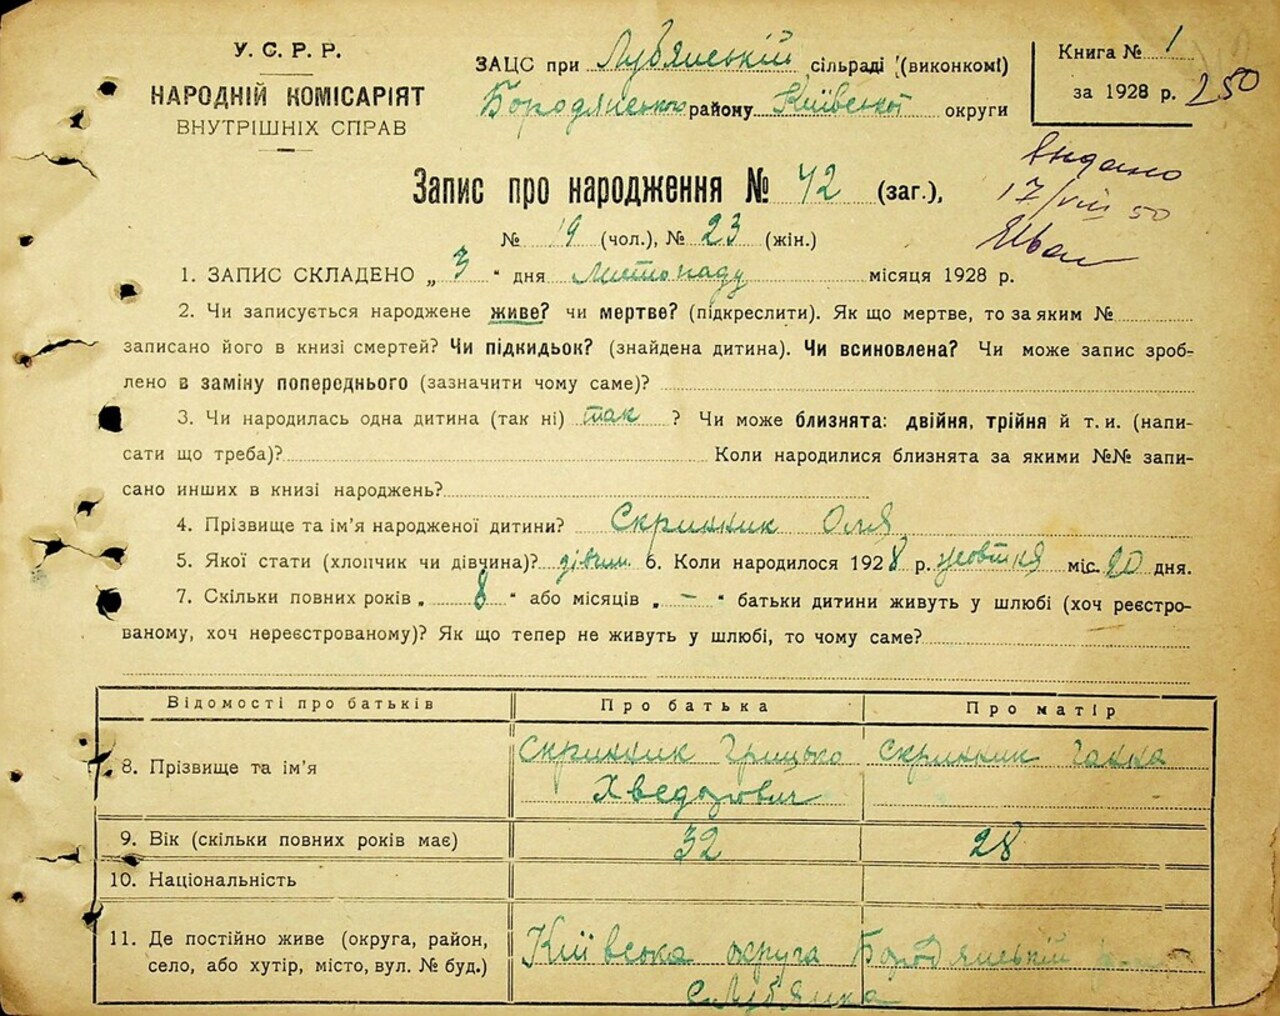 У. С. Р. Р.
НАРОДНІЙ КОМІСАРІЯТ
ВНУТРІШНІХ СПРАВ
ЗАЦС при Лубянській сільраді (виконкомі)
Бородянського району Київської округи
Книга № 1
за 1928 р. 250
Видано
17/VIII 50
Запис про народження № 42 (заг.),
№ 19 (чол.), № 23 (жін.)
1. ЗАПИС СКЛАДЕНО „ 3 “ дня Листопаду місяця 1928 р.
2. Чи записується народжене живе? чи мертве? (підкреслити). Як що мертве, то за яким №
записано його в книзі смертей? Чи підкидьок? (знайдена дитина). Чи всиновлена? Чи може запис зроб-
лено в заміну попереднього (зазначити чому саме)?
3. Чи народилась одна дитина (так ні) так ? Чи може близнята: двійня, трійня й т. и. (напи-
сати що треба)? Коли народилися близнята за якими №№ запи-
сано инших в книзі народжень?
4. Прізвище та ім'я народженої дитини? Скринник Оля
5. Якої стати (хлопчик чи дівчина)? дівчин. 6. Коли народилося 1928 р. жовтня міс. 20 дня.
7. Скільки повних років „ 8 “ або місяців „ – “ батьки дитини живуть у шлюбі (хоч реєстро-
ваному, хоч нереєстрованому)? Як що тепер не живуть у шлюбі, то чому саме?
Відомості про батьків Про батька Про матір
8. Прізвище та ім'я Скринник Грицько Скринник Ганна
Хведорович
9. Вік (скільки повних років має) 32 28
10. Національність
11. Де постійно живе (округа, район,
село, або хутір, місто, вул. № буд.)
Київська округа Бородянський
с. Лубянка